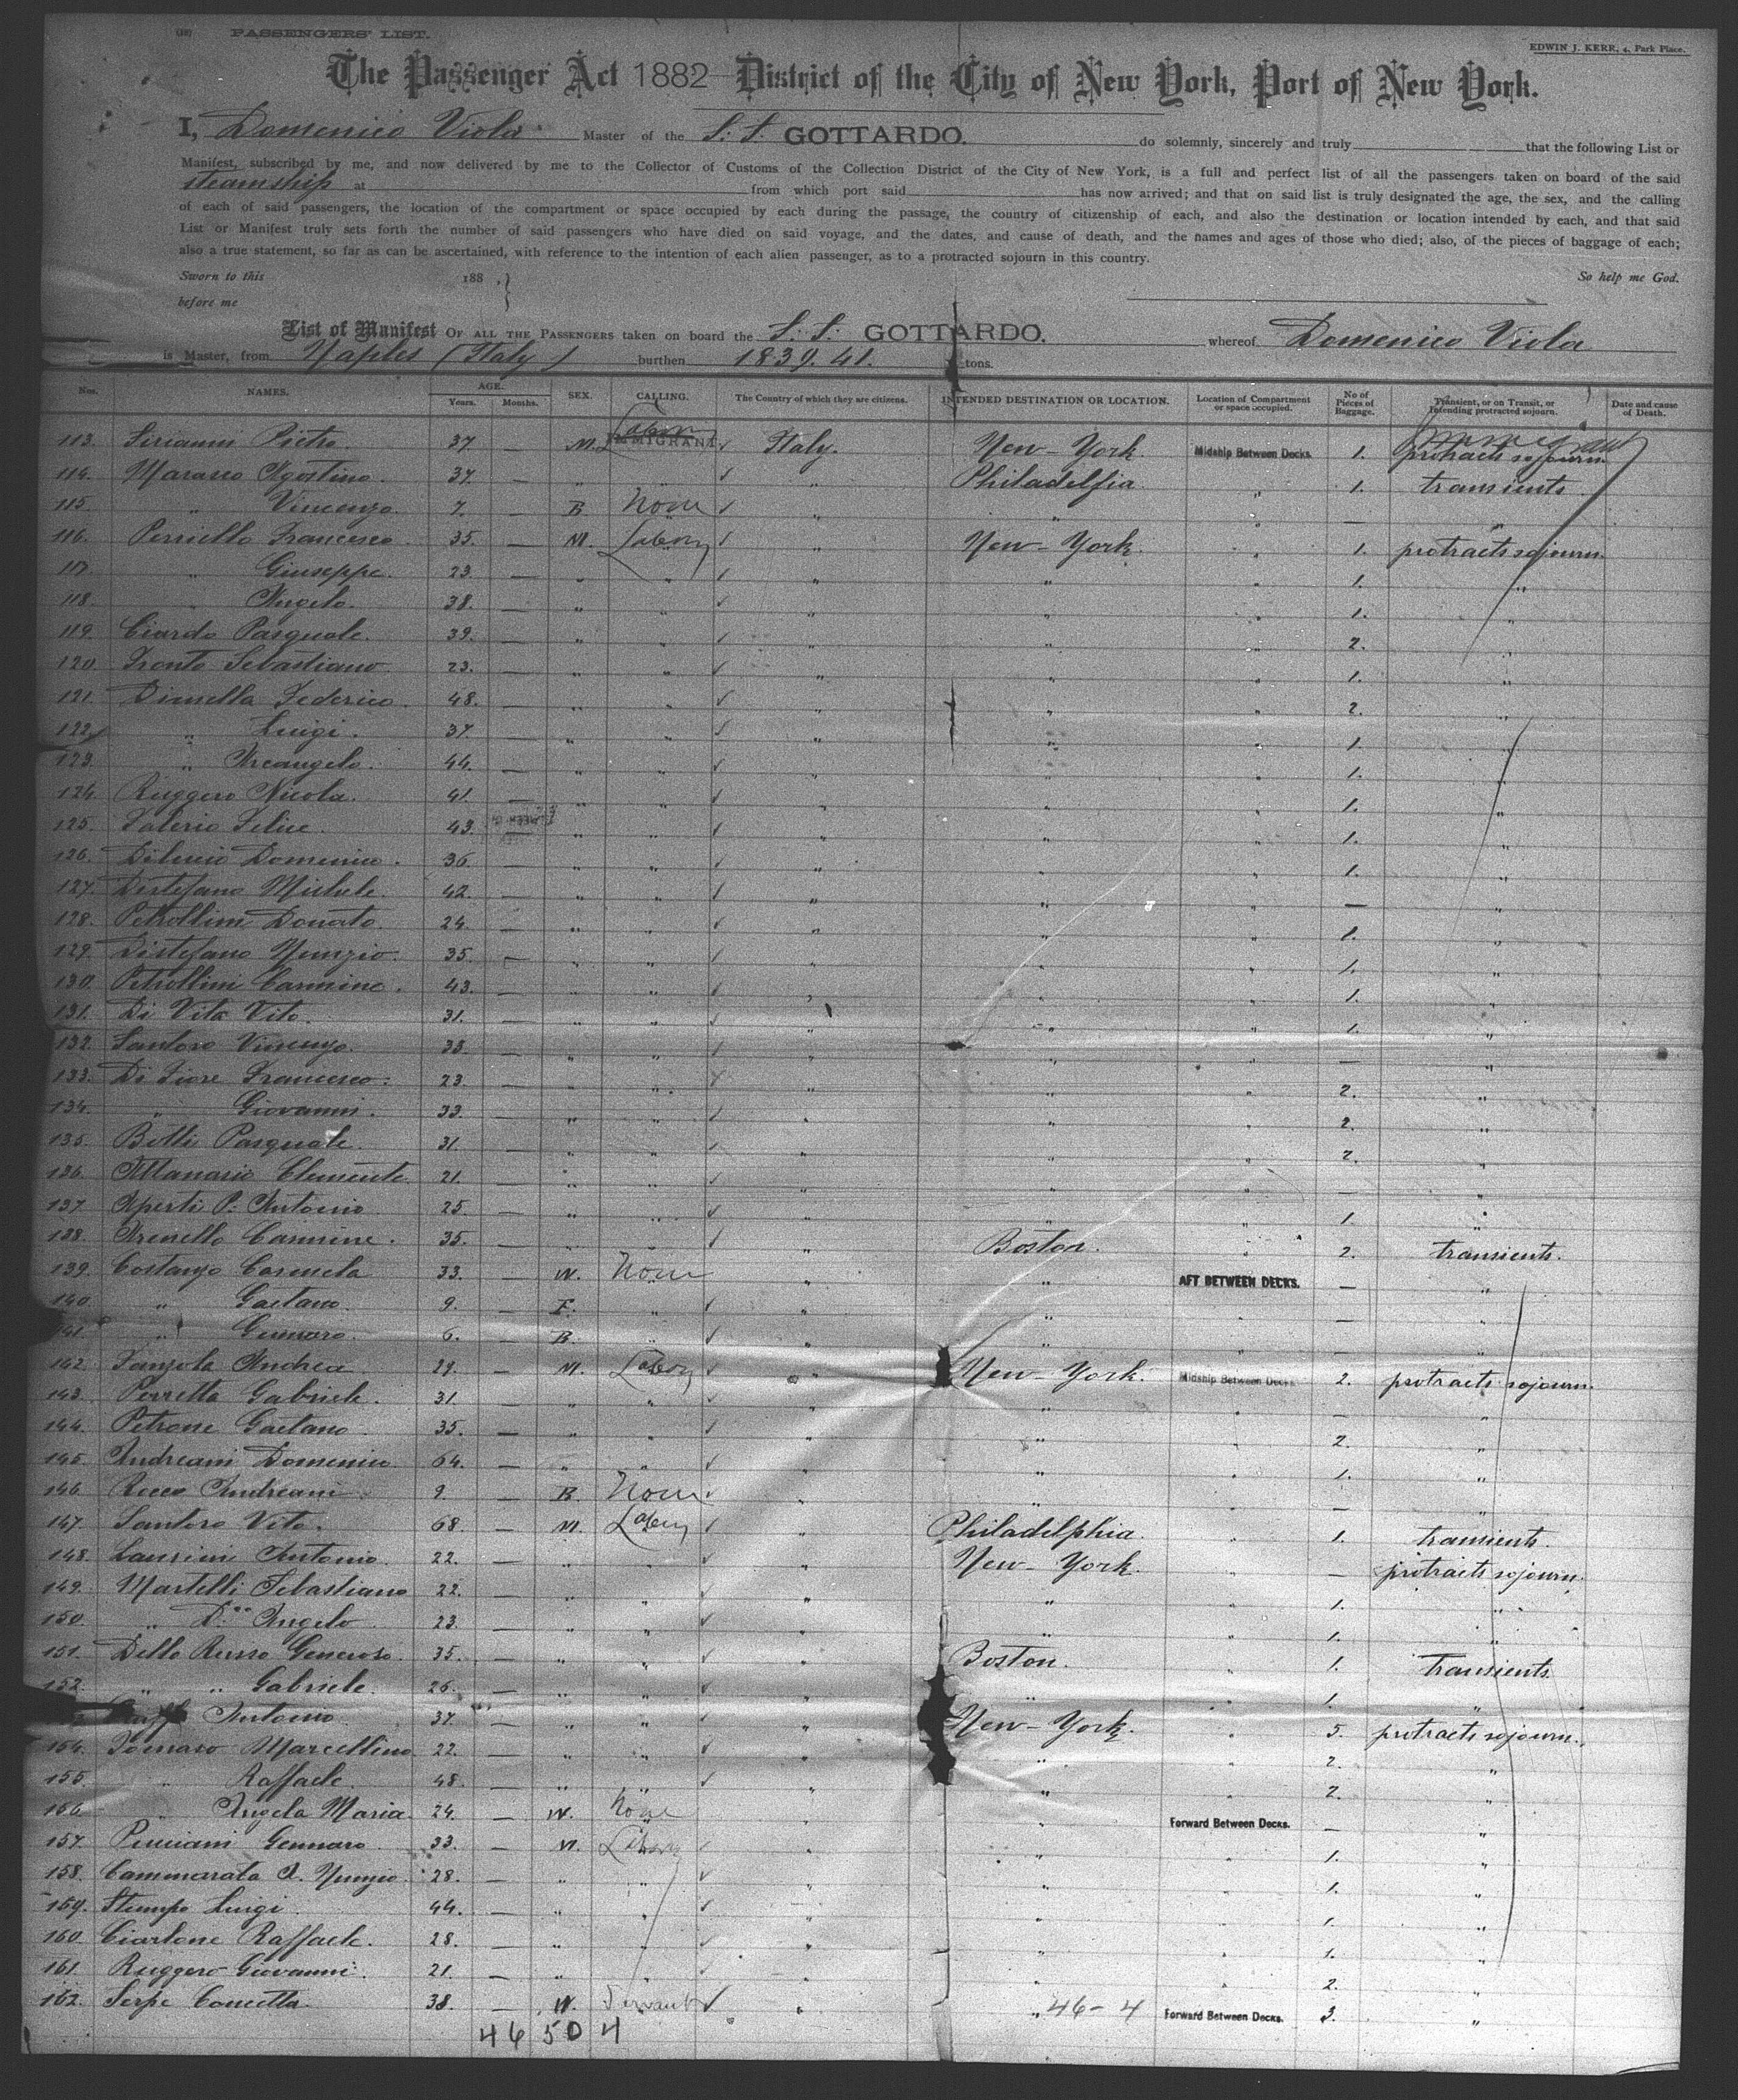 (18) PASSENGERS' LIST.
EDWIN J. KERR, 4, Park Place.
The Passenger Act 1882 District of the City of New York, Port of New York.
I, Domenico Viola Master of the S.S. GOTTARDO. do solemnly, sincerely and truly that the following List or
Manifest, subscribed by me, and now delivered by me to the Collector of Customs of the Collection District of the City of New York, is a full and perfect list of all the passengers taken on board of the said
steamship at from which port said has now arrived; and that on said list is truly designated the age, the sex, and the calling
of each of said passengers, the location of the compartment or space occupied by each during the passage, the country of citizenship of each, and also the destination or location intended by each, and that said
List or Manifest truly sets forth the number of said passengers who have died on said voyage, and the dates, and cause of death, and the names and ages of those who died; also, of the pieces of baggage of each;
also a true statement, so far as can be ascertained, with reference to the intention of each alien passenger, as to a protracted sojourn in this country.
Sworn to this 188 . } So help me God.
before me
List of Manifest OF ALL THE PASSENGERS taken on board the S.S. GOTTARDO. whereof Domenico Viola
is Master, from Naples (Italy) burthen 1839.41. tons.
Nos. NAMES. AGE. Years. Months. SEX. CALLING. The Country of which they are citizens. INTENDED DESTINATION OR LOCATION. Location of Compartment or space occupied. No of Pieces of Baggage. Transient, or on Transit, or Intending protracted sojourn. Date and cause of Death.
113. Sirianni Pietro 37. — M. Italy. New-York Midship Between Decks. 1. protracts sojourn
114. Marasco Agostino. 37. — " " Philadelfia " 1. transients
115. " Vincenzo 7. — B. None " " " — "
116. Perriello Francesco 35. — M. Labory " New-York. " 1. protracts sojourn.
117. " Giuseppe. 23. — " " " " " 1. "
118. " Angelo. 38. — " " " " " 1. "
119. Ciardo Pasquale. 39. — " " " " " 2. "
120. Pronto Sebastiano 23. — " " " " " 1. "
121. Dimella Federico. 48. — " " " " " 2. "
122. " Luigi. 37. — " " " " " 1. "
123. " Arcangelo. 44. — " " " " " 1. "
124. Ruggero Nicola. 41. — " " " " " 1. "
125. Valerio Felice. 43. — " " " " " 1. "
126. Dilucio Domenico. 36. — " " " " " 1. "
127. Distefano Michele. 42. — " " " " " — "
128. Petrollini Donato. 24. — " " " " " 1. "
129. Distefano Nunzio. 35. — " " " " " 1. "
130. Petrollini Carmine. 43. — " " " " " 1. "
131. Di Vita Vito. 31. — " " " " " 1. "
132. Santoro Vincenzo. 35. — " " " " " — "
133. Di Fiore Francesco. 23. — " " " " " 2. "
134. " Giovanni. 33. — " " " " " 2. "
135. Botti Pasquale. 31. — " " " " " 2. "
136. Attanasio Clemente 21. — " " " " " — "
137. Aperti P. Antonio 25. — " " " " " 1. "
138. Carmine. 35. — " " " Boston. " 2. transients.
139. Costanzo Carmela 33. — W. None " " AFT BETWEEN DECKS. — "
140. " Gaetano. 9. — F. " " " " — "
141. " Gennaro. 6. — B. " " " " — "
142. Andrea 29. — M. Labory " New-York. Midship Between Decks. 2. protracts sojourn.
143. Perretta Gabriele. 31. — " " " " " — "
144. Petrone Gaetano 35. — " " " " " 2. "
145. Andreani Domenico. 64. — " " " " " 1. "
146. Rocco Andreani 9. — B. None " " " — "
147. Santoro Vito. 68. — M. Labory " Philadelphia. " 1. transients.
148. Laurini Antonio. 22. — " " " New-York. " — protracts sojourn.
149. Martelli Sebastiano 22. — " " " " " 1. "
150. " D. Angelo 23. — " " " " " 1. "
151. Dello Russo Generoso. 35. — " " " Boston. " 1. transients.
152. " " Gabriele. 26. — " " " " " 1. "
Antonio 37. — " " " New-York. " 5. protracts sojourn.
154. Tomaso Marcellino 22. — " " " " " 2. "
155. " Raffaele. 48. — " " " " " 2. "
156. " Angela Maria. 24. — W. None " " Forward Between Decks. — "
157. Gennaro. 33. — M. Labory " " 1. "
158. Cammarata A. Nunzio. 28. — " " " " 1. "
159. Stumpo Luigi. 44. — " " " " 1. "
160. Ciarlone Raffaele. 28. — " " " " 1. "
161. Ruggero Giovanni. 21. — " " " " 2. "
162. Serpe Concetta. 38. — W. Servant " " 46-4 Forward Between Decks. 3. "
46 50 4